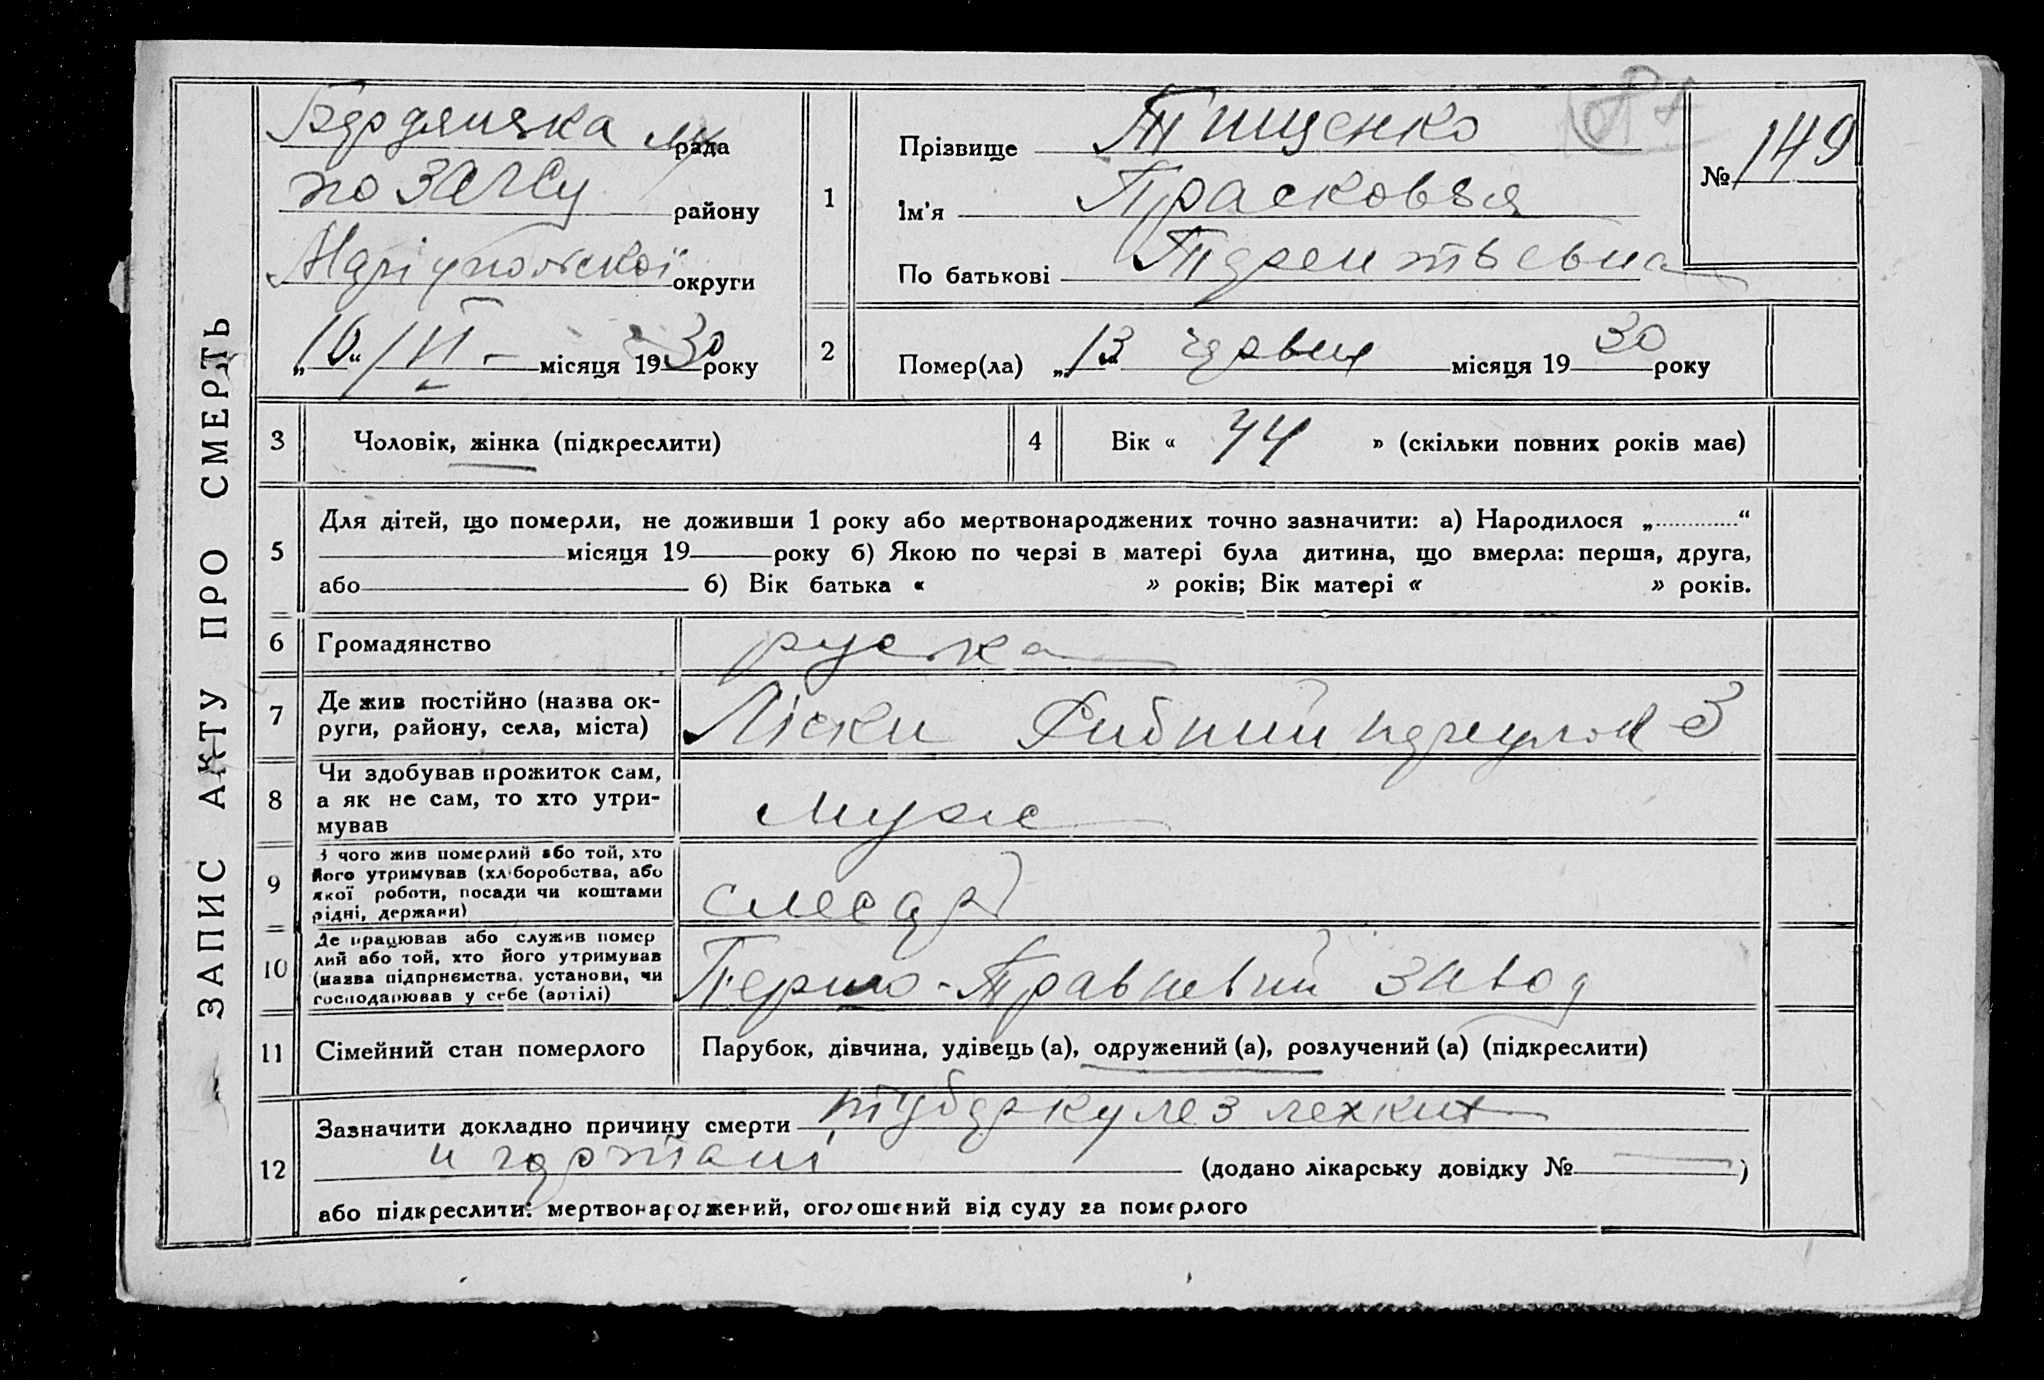 ЗАПИС АКТУ ПРО СМЕРТЬ
Бердянська м/рада
по ЗАГСу району
Маріупольскої округи
„16“ VI - місяця 1930 року
1
Прізвище Тищенко
Ім'я Прасковья
По батькові Терентьевна
№ 149
2
Помер(ла) „13“ червня місяця 1930 року
3 Чоловік, жінка (підкреслити)
4 Вік « 44 » (скільки повних років має)
5
Для дітей, що померли, не доживши 1 року або мертвонароджених точно зазначити: а) Народилося „ “
місяця 19 року б) Якою по черзі в матері була дитина, що вмерла: перша, друга,
або б) Вік батька « » років; Вік матері « » років.
6 Громадянство руська
7 Де жив постійно (назва ок-
руги, району, села, міста)
Ліски Рибний переулок 3
8 Чи здобував прожиток сам,
а як не сам, то хто утри-
мував
муж
9 З чого жив померлий або той, хто
його утримував (хліборобства, або
якої роботи, посади чи коштами
рідні, держави)
слесар
10 Де працював або служив помер
лий або той, хто його утримував
(назва підприємства, установи, чи
господарював у себе (артілі)
Першо-Травневий завод
11 Сімейний стан померлого
Парубок, дівчина, удівець (а), одружений (а), розлучений (а) (підкреслити)
12
Зазначити докладно причину смерти туберкулез легких
и гортані (додано лікарську довідку № — )
або підкреслити: мертвонароджений, оголошений від суду за померлого